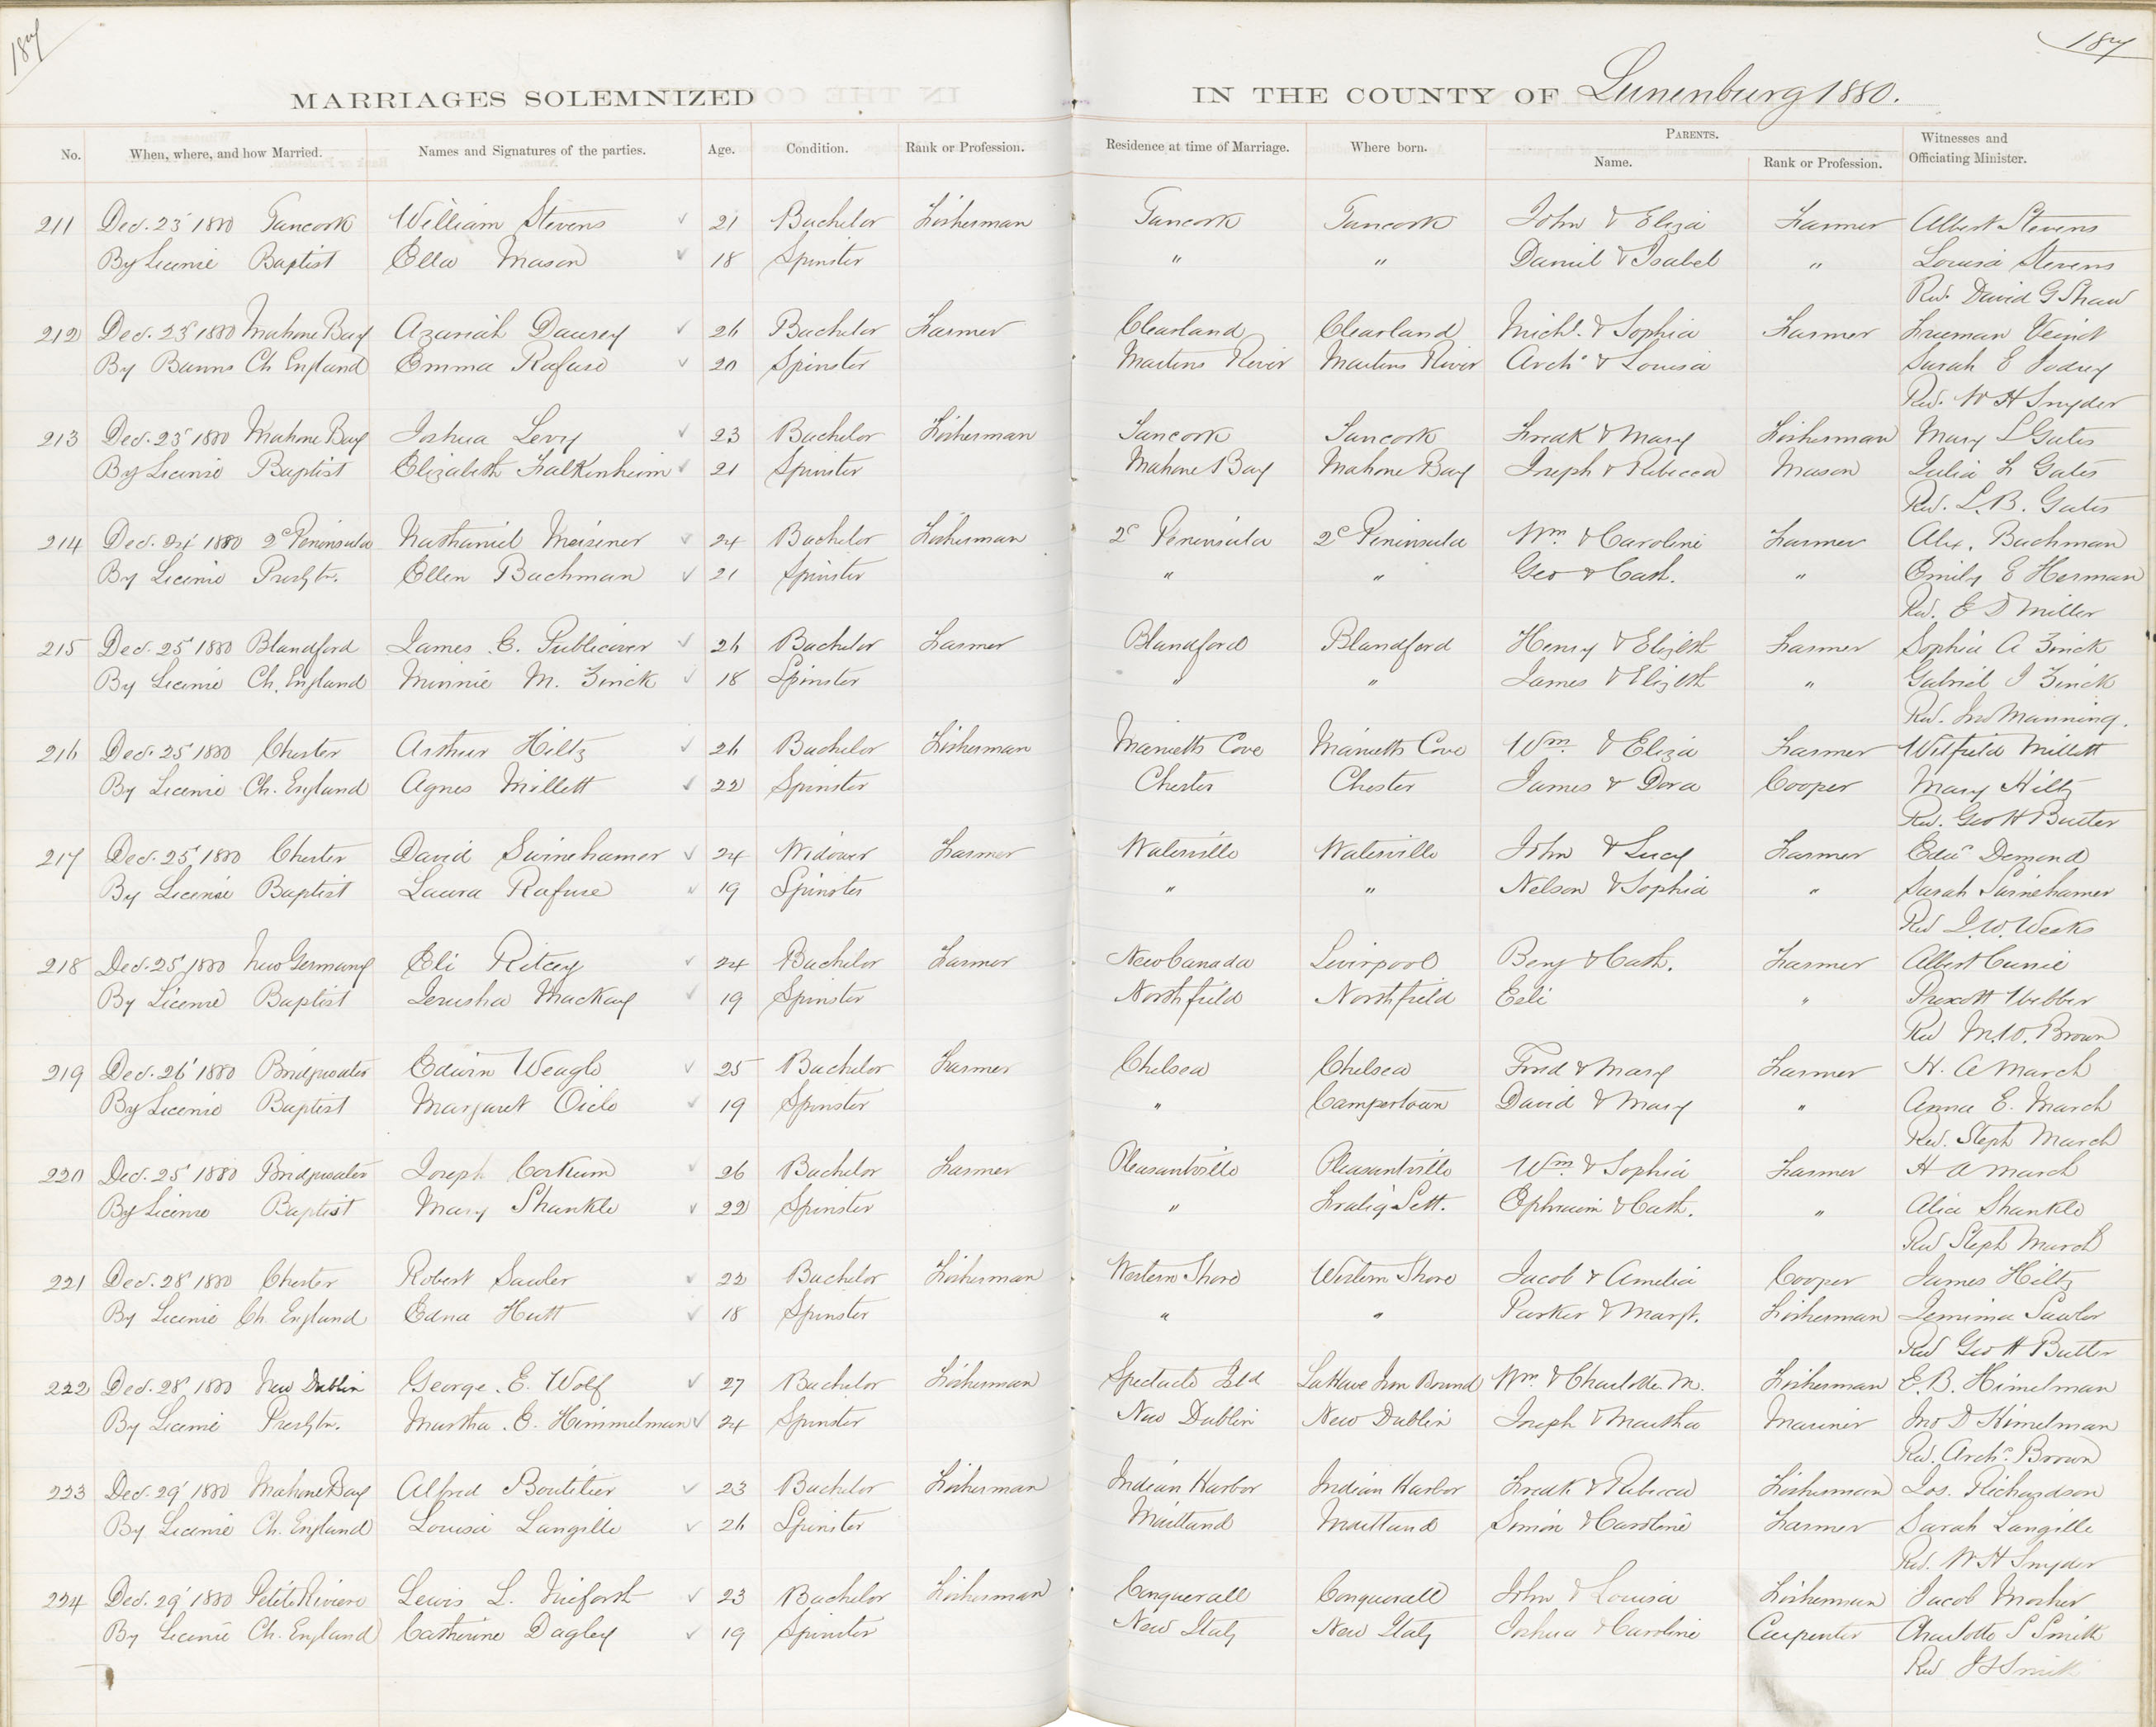 187
187
MARRIAGES SOLEMNIZED IN THE COUNTY OF Lunenburg 1880.
No. When, where, and how Married. Names and Signatures of the parties. Age. Condition. Rank or Profession. Residence at time of Marriage. Where born. PARENTS. Name. Rank or Profession. Witnesses and Officiating Minister.
211 Dec. 23 1880 Tancook William Stevens 21 Bachelor Fisherman Tancook Tancook John & Eliza Farmer Albert Stevens
By License Baptist Ella Mason 18 Spinster " " Daniel & Isabel " Louisa Stevens
Rev. David G Shaw
212 Dec. 23 1880 Mahone Bay Azariah Daurey 26 Bachelor Farmer Clearland Clearland Michl. & Sophia Farmer Freeman Veinot
By Banns Ch England Emma Rafuse 20 Spinster Martins River Martins River Archd & Louisa Sarah E Jodrey
Rev. W H Snyder
213 Dec. 23 1880 Mahone Bay Joshua Levy 23 Bachelor Fisherman Tancook Tancook Fredk & Mary Fisherman Mary L Gates
By License Baptist Elizabeth Falkenheim 21 Spinster Mahone Bay Mahone Bay Joseph & Rebecca Mason Julia L Gates
Rev. L. B. Gates
214 Dec. 1880 2d Peninsula Nathaniel Meisener 24 Bachelor Fisherman 2d Peninsula 2d Peninsula Wm & Caroline Farmer Alex. Bachman
By License Presbytn. Ellen Bachman 21 Spinster " " Geo & Cath. " Emily E Herman
Rev. E D Miller
215 Dec. 25 1880 Blandford James E. Publicover 26 Bachelor Farmer Blandford Blandford Henry & Elizbth Farmer Sophia A Zinck
By License Ch. England Minnie M. Zinck 18 Spinster " " James & Elizbth " Gabriel J Zinck
Rev. Jno Manning.
216 Dec. 25 1880 Chester Arthur Hiltz 26 Bachelor Fisherman Marietts Cove Marietts Cove Wm & Eliza Farmer Wilfield Millett
By License Ch. England Agnes Millett 22 Spinster Chester Chester James & Dora Cooper Mary Hiltz
Rev. Geo H Butler
217 Dec. 25 1880 Chester David Swinehamer 24 Widower Farmer Waterville Waterville John & Lucy Farmer Edwd Demond
By License Baptist Laura Rafuse 19 Spinster " " Nelson & Sophia " Sarah Swinehamer
Rev I. W. Weeks
218 Dec. 25 1880 New Germany Eli Ritcey 24 Bachelor Farmer New Canada Liverpool Benj & Cath. Farmer Albert Cunie
By License Baptist Jerusha MacKay 19 Spinster Northfield Northfield Eeli " Prescott Webber
Rev M. W. Brown
219 Dec. 26 1880 Bridgwater Edwin Weagle 25 Bachelor Farmer Chelsea Chelsea Fred & Mary Farmer H. A March
By License Baptist Margaret Oicle 19 Spinster " Campertown David & Mary " Anna E. March
Rev. Steph March
220 Dec. 25 1880 Bridgwater Joseph Corkum 26 Bachelor Farmer Pleasantville Pleasantville Wm & Sophia Farmer H A March
By License Baptist Mary Shankle 22 Spinster " Fralig Sett. Ephraim & Cath. " Alice Shankle
Rev Steph March
221 Dec. 28 1880 Chester Robert Sawler 22 Bachelor Fisherman Western Shore Western Shore Jacob & Amelia Cooper James Hiltz
By License Ch. England Edna Hutt 18 Spinster " " Parker & Margt. Fisherman Jemima Sawler
Rev Geo H Butler
222 Dec. 28 1880 New Dublin George. E. Wolf 27 Bachelor Fisherman Spectacle Isld LaHave Iron Bound Wm & Charlotte. M. Fisherman E. B. Himelman
By License Presbytn. Martha. E. Himmelman 24 Spinster New Dublin New Dublin Joseph & Martha Mariner Jno D Himelman
Rev. Archd. Brown
223 Dec. 29 1880 Mahone Bay Alfred Boutilier 23 Bachelor Fisherman Indian Harbor Indian Harbor Fredk & Rebecca Fisherman Jos. Richardson
By License Ch. England Louisa Langille 26 Spinster Maitland Maitland Simon & Caroline Farmer Sarah Langille
Rev. W H Snyder
224 Dec. 29 1880 Petite Riviere Lewis L. 23 Bachelor Fisherman Conquerall Conquerall John & Louisa Fisherman Jacob Mosher
By License Ch. England Catherine Dagley 19 Spinster New Italy New Italy Joshua & Caroline Carpenter Charlotte S Smith
Rev J S Smith